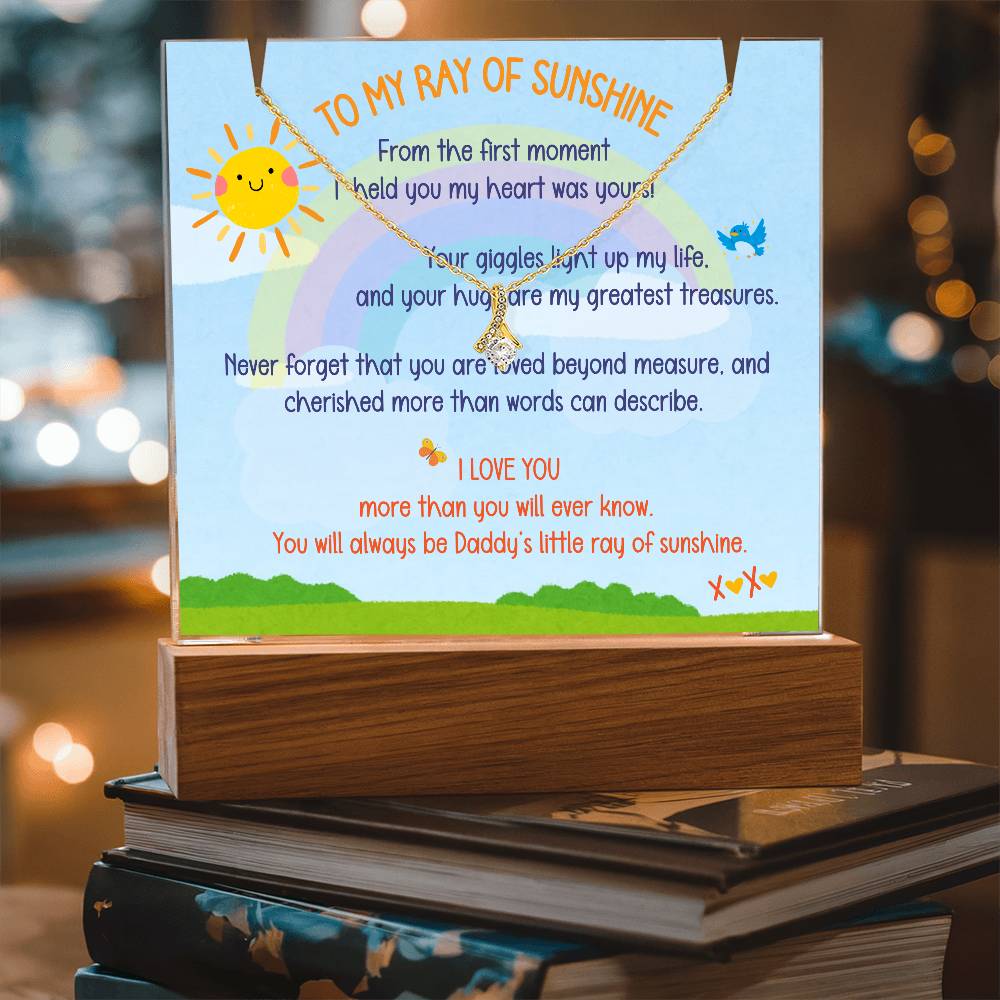 TO MY RAY OF SUNSHINE
From the first moment
I held you my heart was yours!
Your giggles light up my life,
and your hugs are my greatest treasures.
Never forget that you are loved beyond measure, and
cherished more than words can describe.
I LOVE YOU
more than you will ever know.
You will always be Daddy's little ray of sunshine.
XOXO